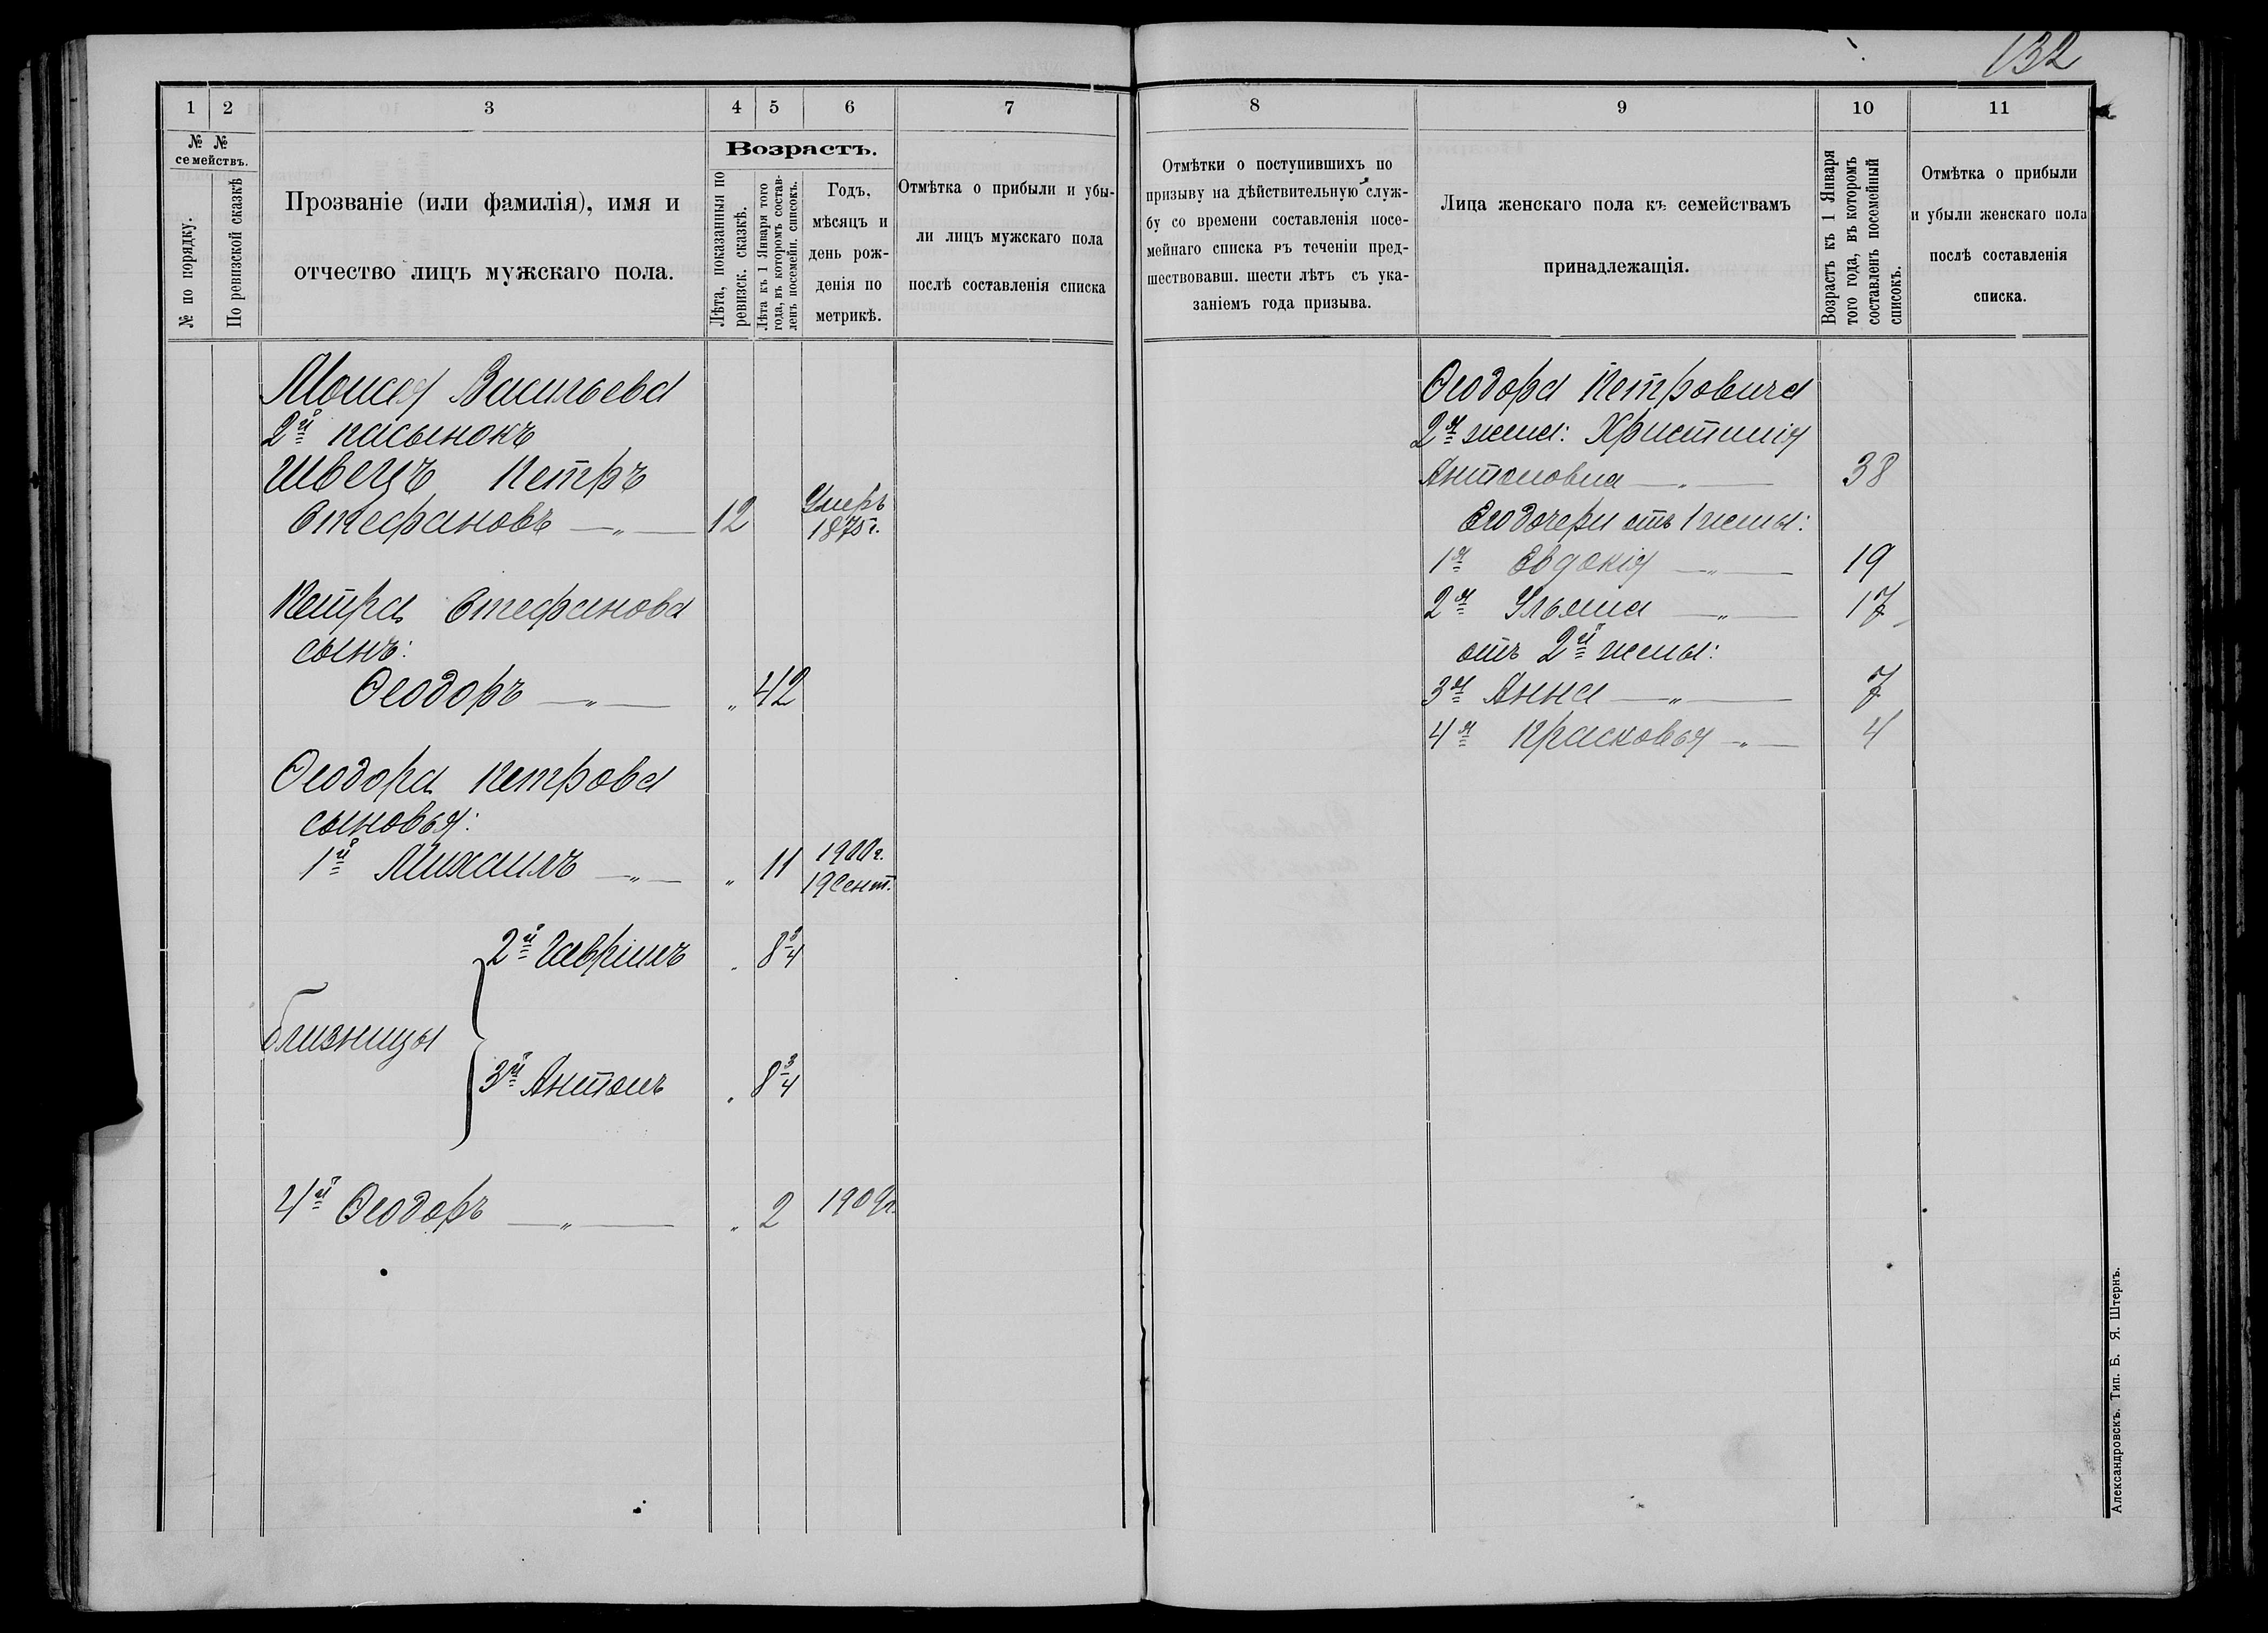 132
1 2 3 4 5 6 7
№ № семействъ.
№ по порядку.
По ревизской сказкѣ
Прозваніе (или фамилія), имя и
отчество лицъ мужскаго пола.
Возрастъ.
Лѣта, показанныя по
ревизск. сказкѣ.
Лѣта къ 1 Января того
года, въ которомъ состав-
ленъ посемейн. списокъ.
Годъ,
мѣсяцъ и
день рож-
денія по
метрикѣ.
Отмѣтка о прибыли и убы-
ли лицъ мужскаго пола
послѣ составленія списка
Моисея Васильева
2й пасынокъ
Швецъ Петръ
Стефановъ —„— 12 Умеръ
1875г.
Петра Стефанова
сынъ:
Ѳеодоръ —„— „ 42
Ѳеодора Петрова
сыновья:
1й Михаилъ —„— „ 11 1900г.
19 Сент.
2й Гавріилъ „ 8 3/4
близнецы
3й Антонъ „ 8 3/4
4й Ѳеодоръ —„— „ 2 1909г.
8 9 10 11
Отмѣтки о поступившихъ по
призыву на дѣйствительную служ-
бу со времени составленія посе-
мейнаго списка въ теченіи пред-
шествовавш. шести лѣтъ съ ука-
заніемъ года призыва.
Лица женскаго пола къ семействамъ
принадлежащія.
Возрастъ къ 1 Января
того года, въ которомъ
составленъ посемейный
списокъ.
Отмѣтка о прибыли
и убыли женскаго пола
послѣ составленія
списка.
Ѳеодора Петровича
2я жена: Христинія
Антоновна —„— 38
Его дочери отъ 1 жены:
1я Евдокія —„— 19
2я Ульяна —„— 17
отъ 2й жены:
3я Анна —„— 7
4я Прасковья —„— 4
Александровскъ. Тип. Б. Я. Штернъ.